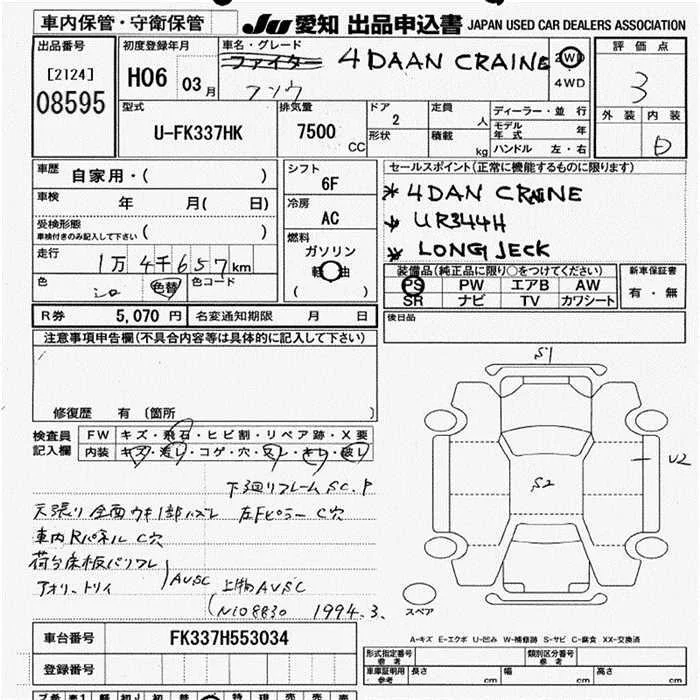 車内保管・守衛保管 JU 愛知 出品申込書 JAPAN USED CAR DEALERS ASSOCIATION
出品番号 初度登録年月 車名・グレード 評価点
[2124] H06 03月 ファイター 4 DAAN CRAINE 2WD 3
08595 フソウ 4WD 外装 内装
型式 排気量 ドア 定員 ディーラー・並行 D
U-FK337HK 7500 CC 2 人 モデル年式 年
形状 積載 kg ハンドル 左・右
車歴 自家用・( ) シフト 6F セールスポイント(正常に機能するものに限ります)
車検 年 月( 日) 冷房 AC * 4DAN CRAINE
受検形態 ( ) * UR344H
車検付きのみ記入して下さい 燃料 * LONG JECK
走行 1万4千657km ガソリン 装備品(純正品に限り○をつけてください) 新車保証書
色 シロ 色替 色コード 軽油 PS PW エアB AW 有・無
( ) SR ナビ TV カワシート
R券 5,070円 名変通知期限 月 日 後日品
注意事項申告欄(不具合内容等は具体的に記入して下さい)
S1
修復歴 有 (箇所 )
検査員 FW キズ・飛石・ヒビ割・リペア跡・X要
記入欄 内装 キズ・汚レ・コゲ・穴・スレ・キレ・破レ
U2
S2
下廻リフレームSC.P
天張り全面ウキ1部ハズレ 左Fピラー C穴
車内Rパネル C穴
荷台床板バリワレ
アオリ・トリイ AUSC 上物AUSC
1994.3.
スペア
車台番号 FK337H553034 A-キズ E-エクボ U-凹み W-補修跡 S-サビ C-腐食 XX-交換済
登録番号 形式指定番号 参考 類別区分番号 参考
車庫証明用 参考 長さ cm 幅 cm 高さ cm